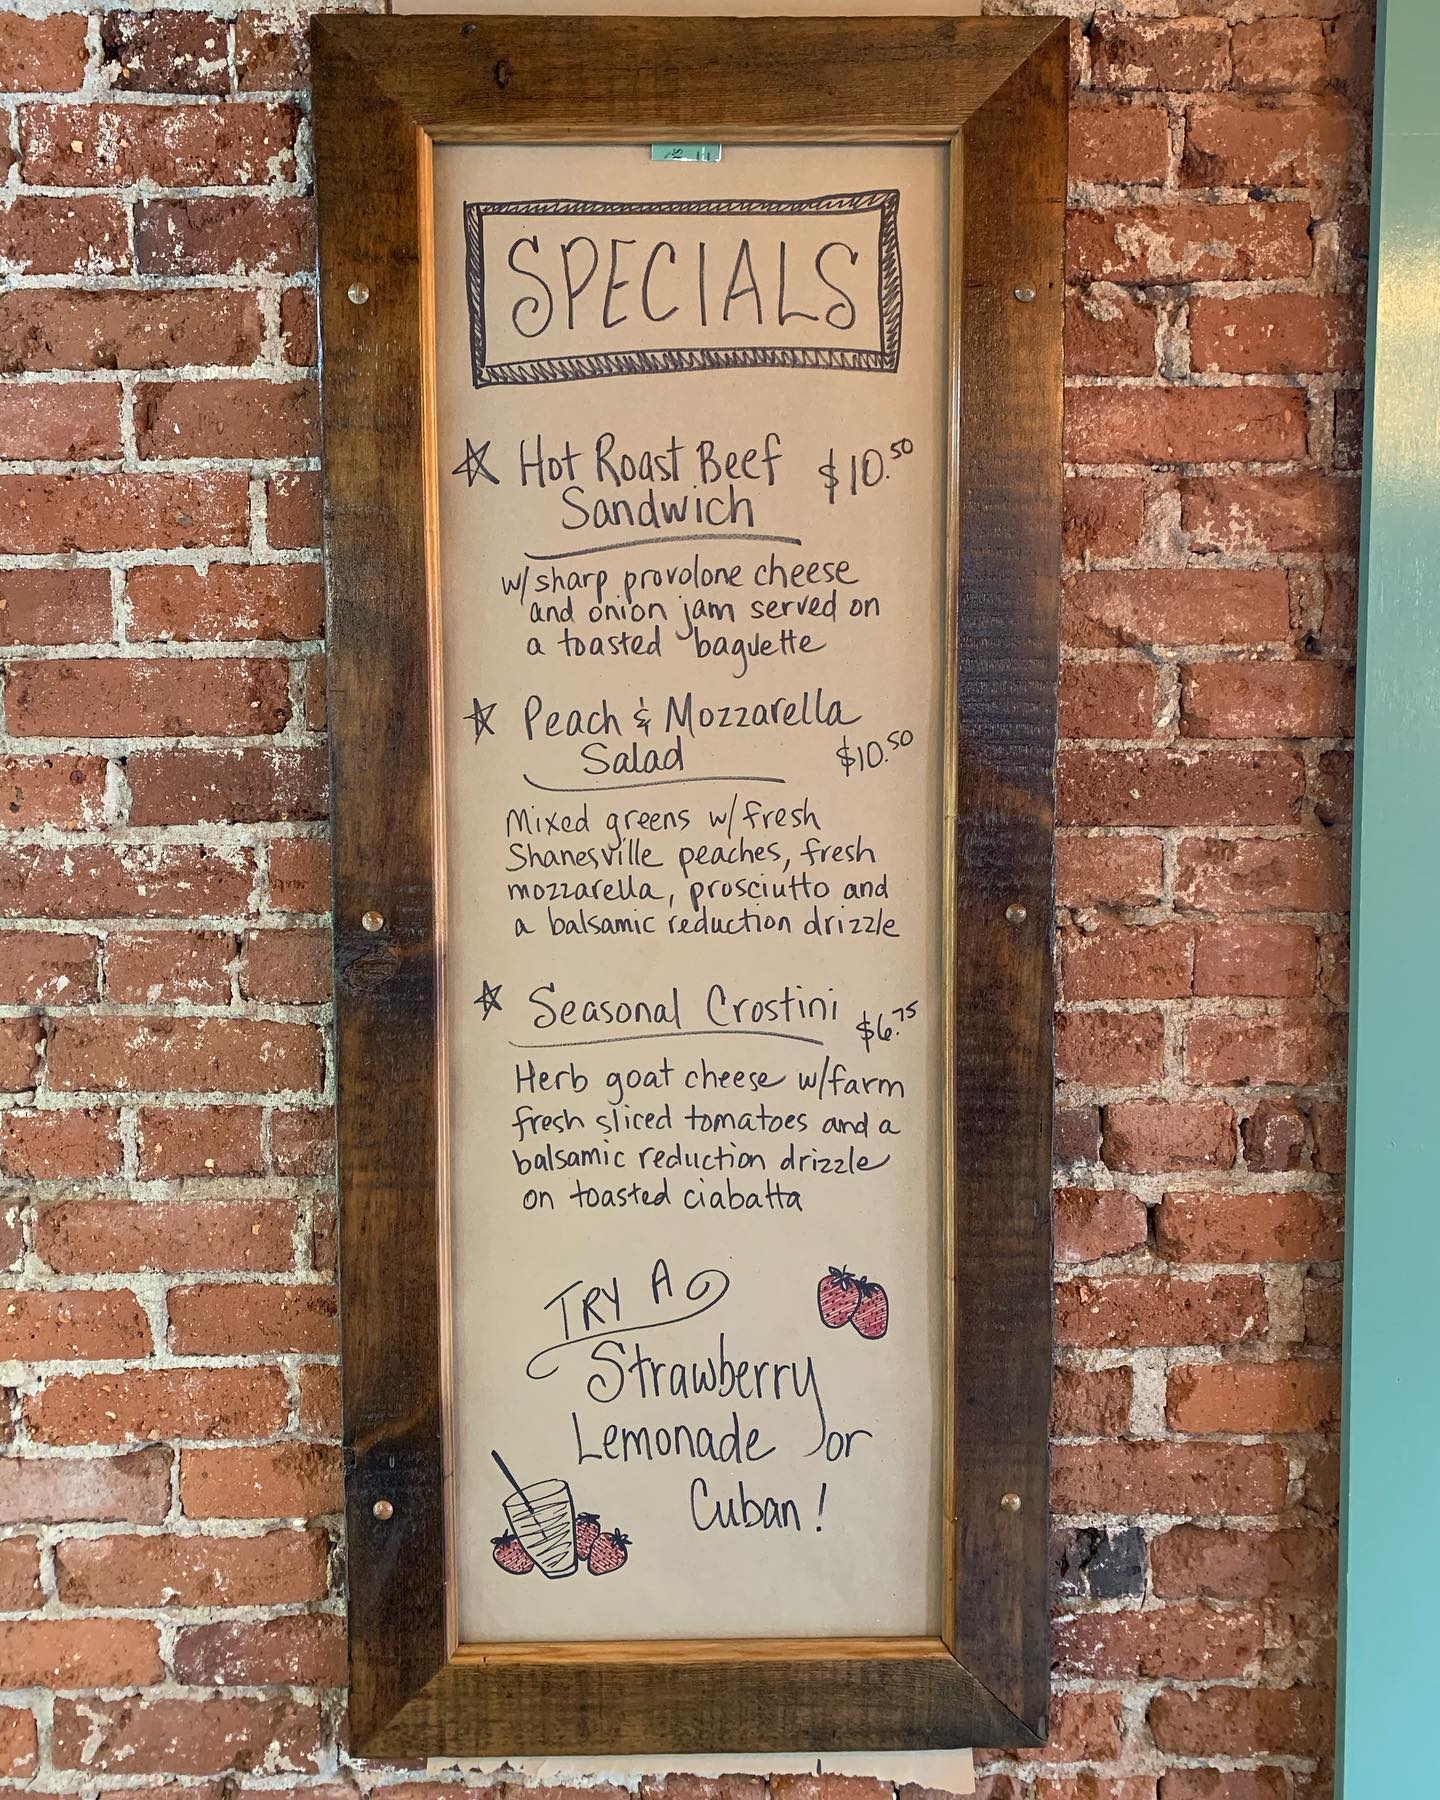 SPECIALS
Hot Roast Beef $10.50
Sandwich
w/sharp provolone cheese
and onion jam served on
a toasted baguette
Peach & Mozzarella
Salad $10.50
Mixed greens w/fresh
Shanesville peaches, fresh
mozzarella, prosciutto and
a balsamic reduction drizzle
Seasonal Crostini $6.75
Herb goat cheese w/farm
fresh sliced tomatoes and a
balsamic reduction drizzle
on toasted ciabatta
TRY A
Strawberry
Lemonade or
Cuban!